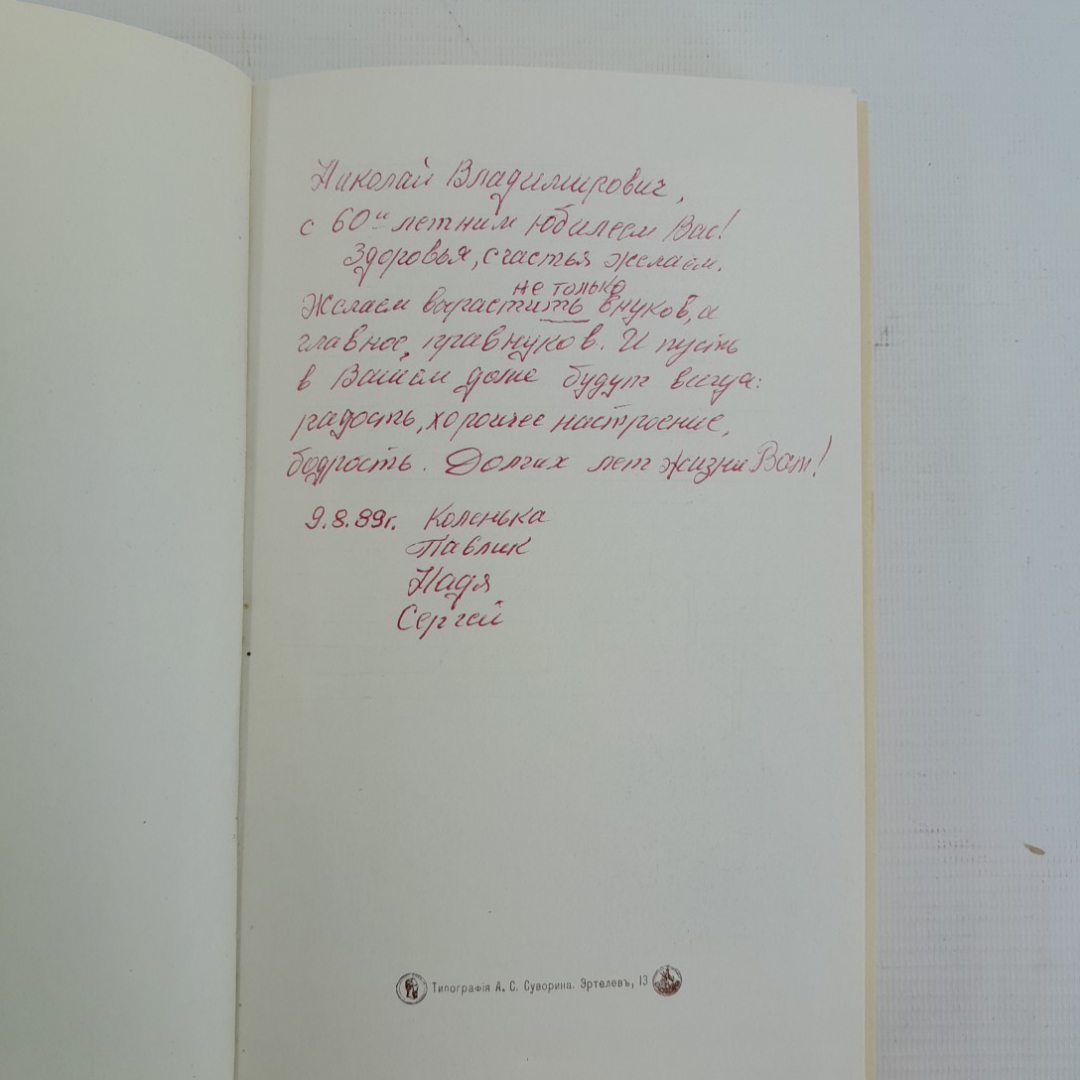 Николай Владимирович,
с 60и летним юбилеем Вас!
Здоровья, счастья желаем.
не только
Желаем взрастить внуков, а
главное, правнуков. И пусть
в Вашем доме будут всегда:
радость, хорошее настроение,
бодрость. Долгих лет жизни Вам!
9.8.89г. Коленька
Павлик
Надя
Сергей
Типографія А. С. Суворина. Эртелевъ, 13